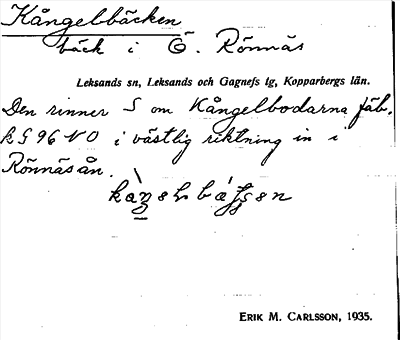 Kångelbäcken
bäck i Ö. Rönnäs
Leksands sn, Leksands och Gagnefs tg, Kopparbergs län.
Den rinner S om Kångelbodarna fäb.
k S 96 NO i västlig riktning in i
Rönnäsån.
ERIK M. CARLSSON, 1935.